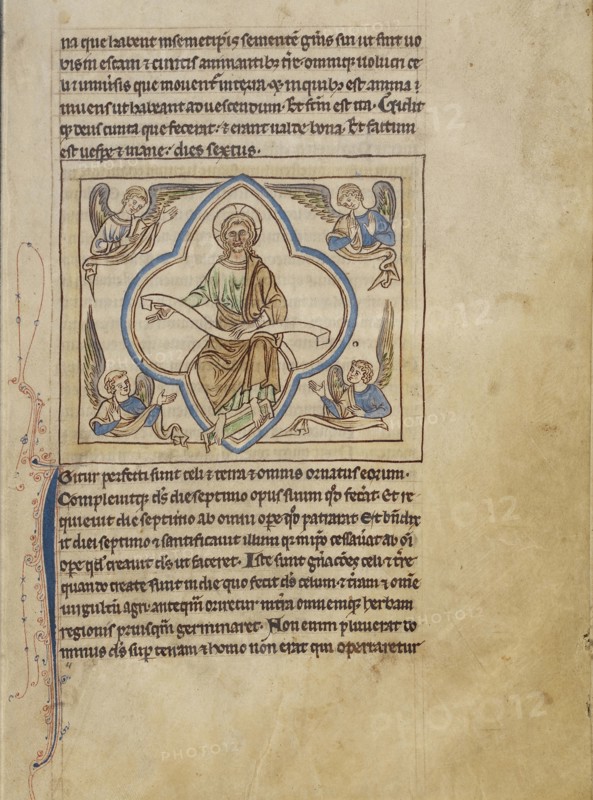 na que habent in semetipis sementē gñis sui ut sint uo
bis in escam ⁊ cunctis animantibꝫ tr̄e omniqꝫ uolucri ce
li ⁊ uniuersis que mouent̃ in terra ⁊ in quibꝫ est anima
uiuens ut habeant ad uescendum. Et fc̄m est ita. Uidit
qꝫ deus cuncta que fecerat: ⁊ erant ualde bona. Et factum
est uesꝑe ⁊ mane: dies sextus.
Igitur perfecti sunt celi ⁊ terra ⁊ omnis ornatus eorum.
Compleuitqꝫ ds̄ die septimo opus suum qd̄ fecerat. Et re
quieuit die septimo ab omni oꝑe qd̄ patrarat. Et bn̄dix
it diei septimo ⁊ sanctificauit illum qꝫ in ip̄o cessauerat ab oī
oꝑe qd̄ creauit ds̄ ut faceret. Iste sunt gñatōes celi ⁊ tr̄e
quando create sunt in die quo fecit ds̄ celum ⁊ tr̄am ⁊ omne
uirgultū agri anteqm̄ oriretur in tr̄a omnemqꝫ herbam
regionis priusqm̄ germinaret. Non enim pluuerat do
minus ds̄ suꝑ terram ⁊ homo non erat qui operaretur
PHOTO12